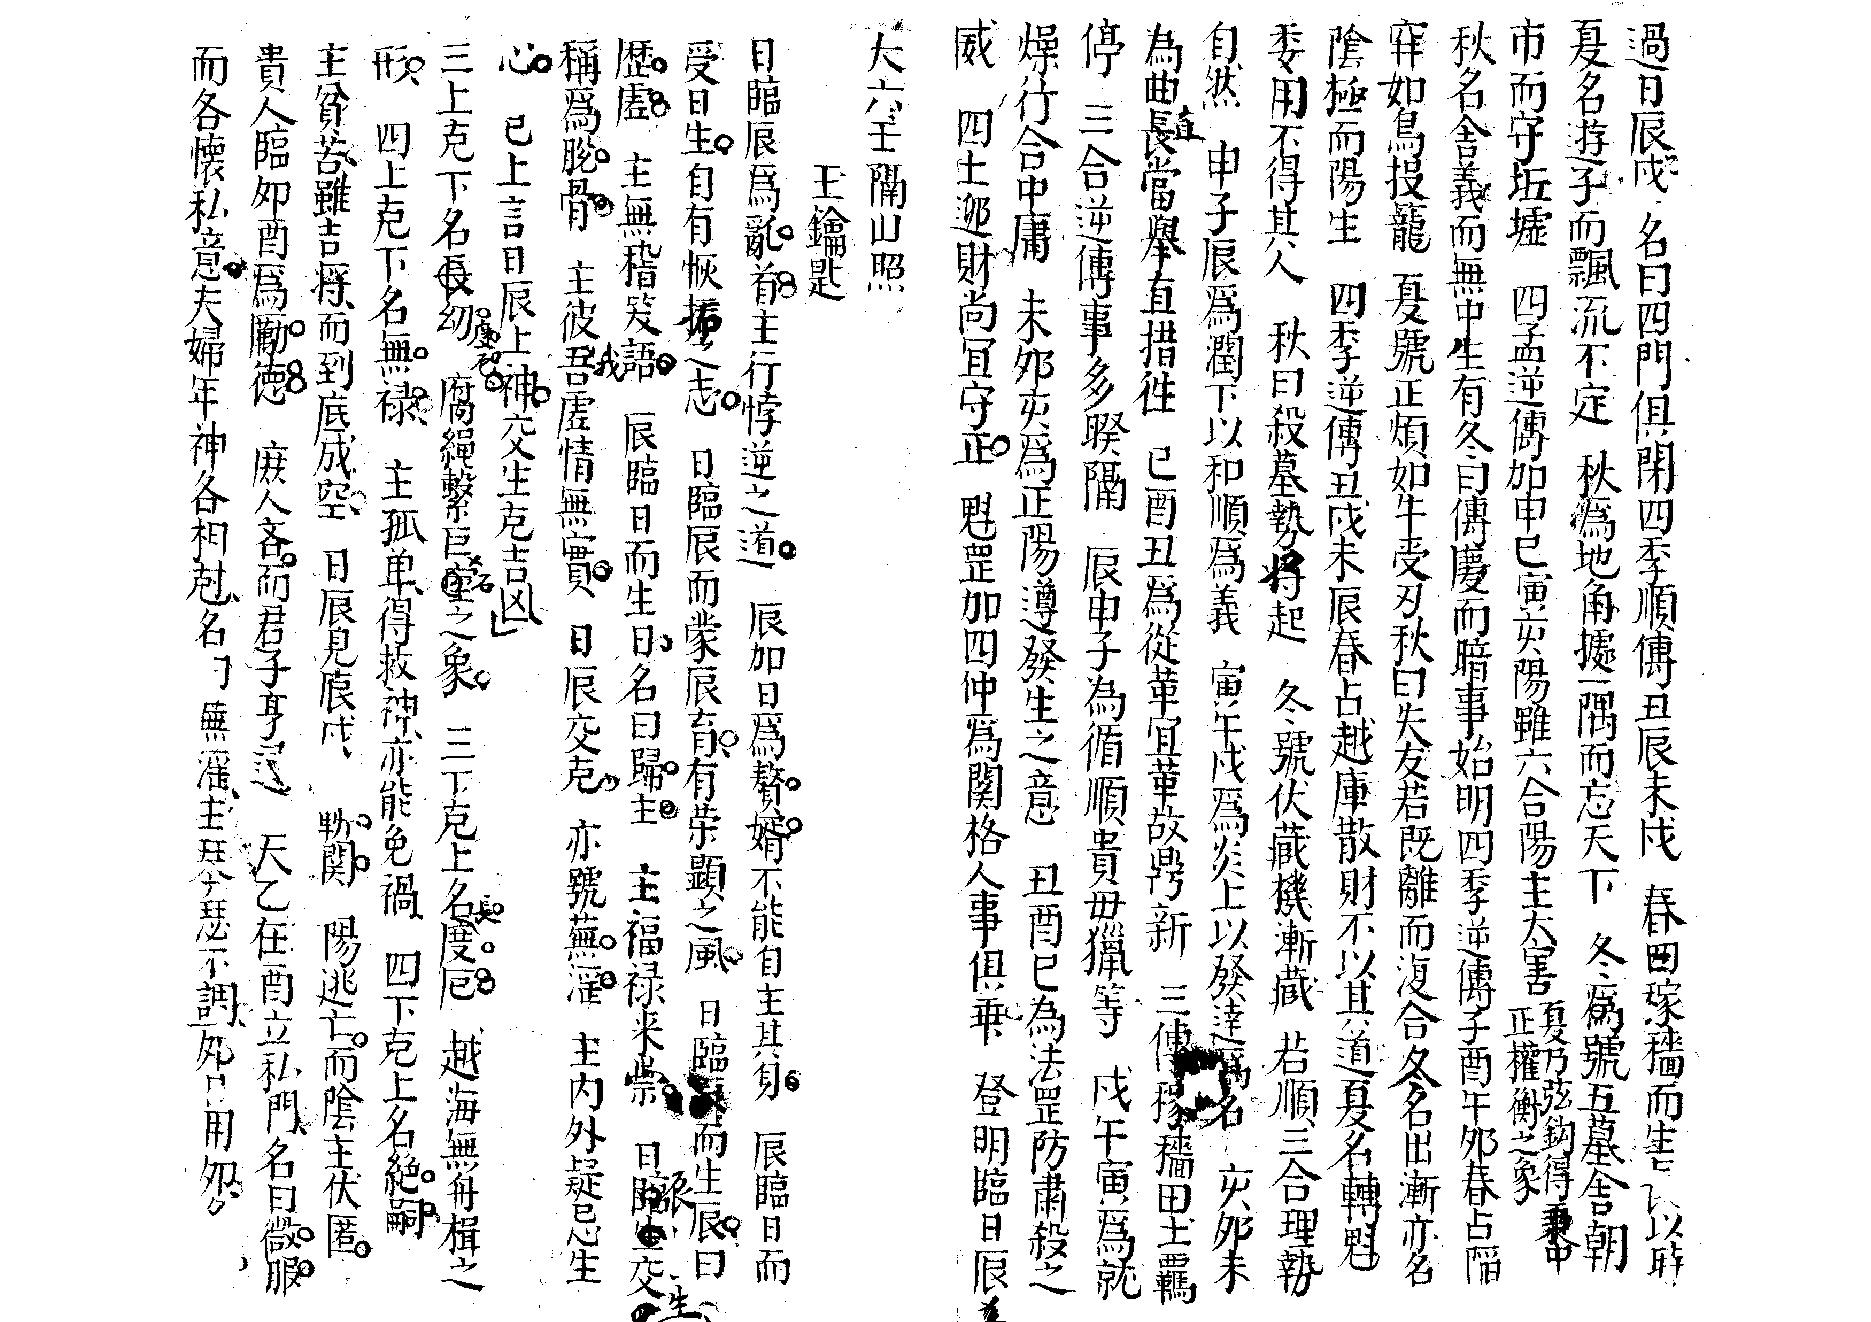 過日辰戌名曰四門俱閉四季順傳丑辰未戌 春田稼穡而生 以時
夏名遊子而飄流不定 秋為地角據一隅而忘天下 冬為號五墓舍朝
市而守坵墟 四孟逆傳加申巳寅亥陽雖六合陽主大害 夏乃弦鈎得秉中正權衡之象
秋名舍義而無中生有冬曰傳慶而暗事始明四季逆傳子酉午卯春占陷
穽如鳥投籠 夏號正煩如牛受刃秋曰失友若既離而復合冬名出漸亦名
陰極而陽生 四季逆傳丑戌未辰春占越庫散財不以其道夏名轉魁
委用不得其人 秋曰殺墓勢將起 冬號伏藏機漸藏 若順三合理勢
自然 申子辰爲潤下以和順爲義 寅午戌爲炎上以發達爲名 亥卯未
為曲直長當舉直措徃 巳酉丑爲從革宜革故鼎新 三傳稼穡田土羈
停 三合逆傳事多睽隔 辰申子為循順貴毋獵等 戌午寅爲就
燥行合中庸 未夘亥爲正陽遵發生之意 丑酉巳為法罡防肅殺之
威 四土迎財尚冝守正 魁罡加四仲爲関格人事俱乖 登明臨日辰
大六壬隔山照
玉鑰匙
日臨辰爲亂首主行悖逆之道 辰加日爲贅婿不能自主其身 辰臨日而
受日生自有恢振之志 日臨辰而蒙辰育有荣顯之風 日臨辰而生辰曰
歷虛 主無稽笑語 辰臨日而生日名曰歸主 主福禄来崇 日辰交生
稱爲脫骨 主彼吾我虛情無實 日辰交克 亦號蕪淫 主内外疑忌生
心 已上言日辰上神交生克吉凶
三上克下名長幼 腐繩繫巨石之象 三下克上名長度厄 越海無舟楫之
形 四上克下名無禄 主孤单得救神亦能免禍 四下克上名絶嗣
主貧苦雖吉将而到底成空 日辰見辰戌 勒関 陽逃亡而陰主伏匿
貴人臨夘酉爲勵德 庶人吝而君子亨 天乙在酉立私門名曰微服
而各懷私意夫婦年神各相尅名曰蕪淫主琴瑟不調 用夘